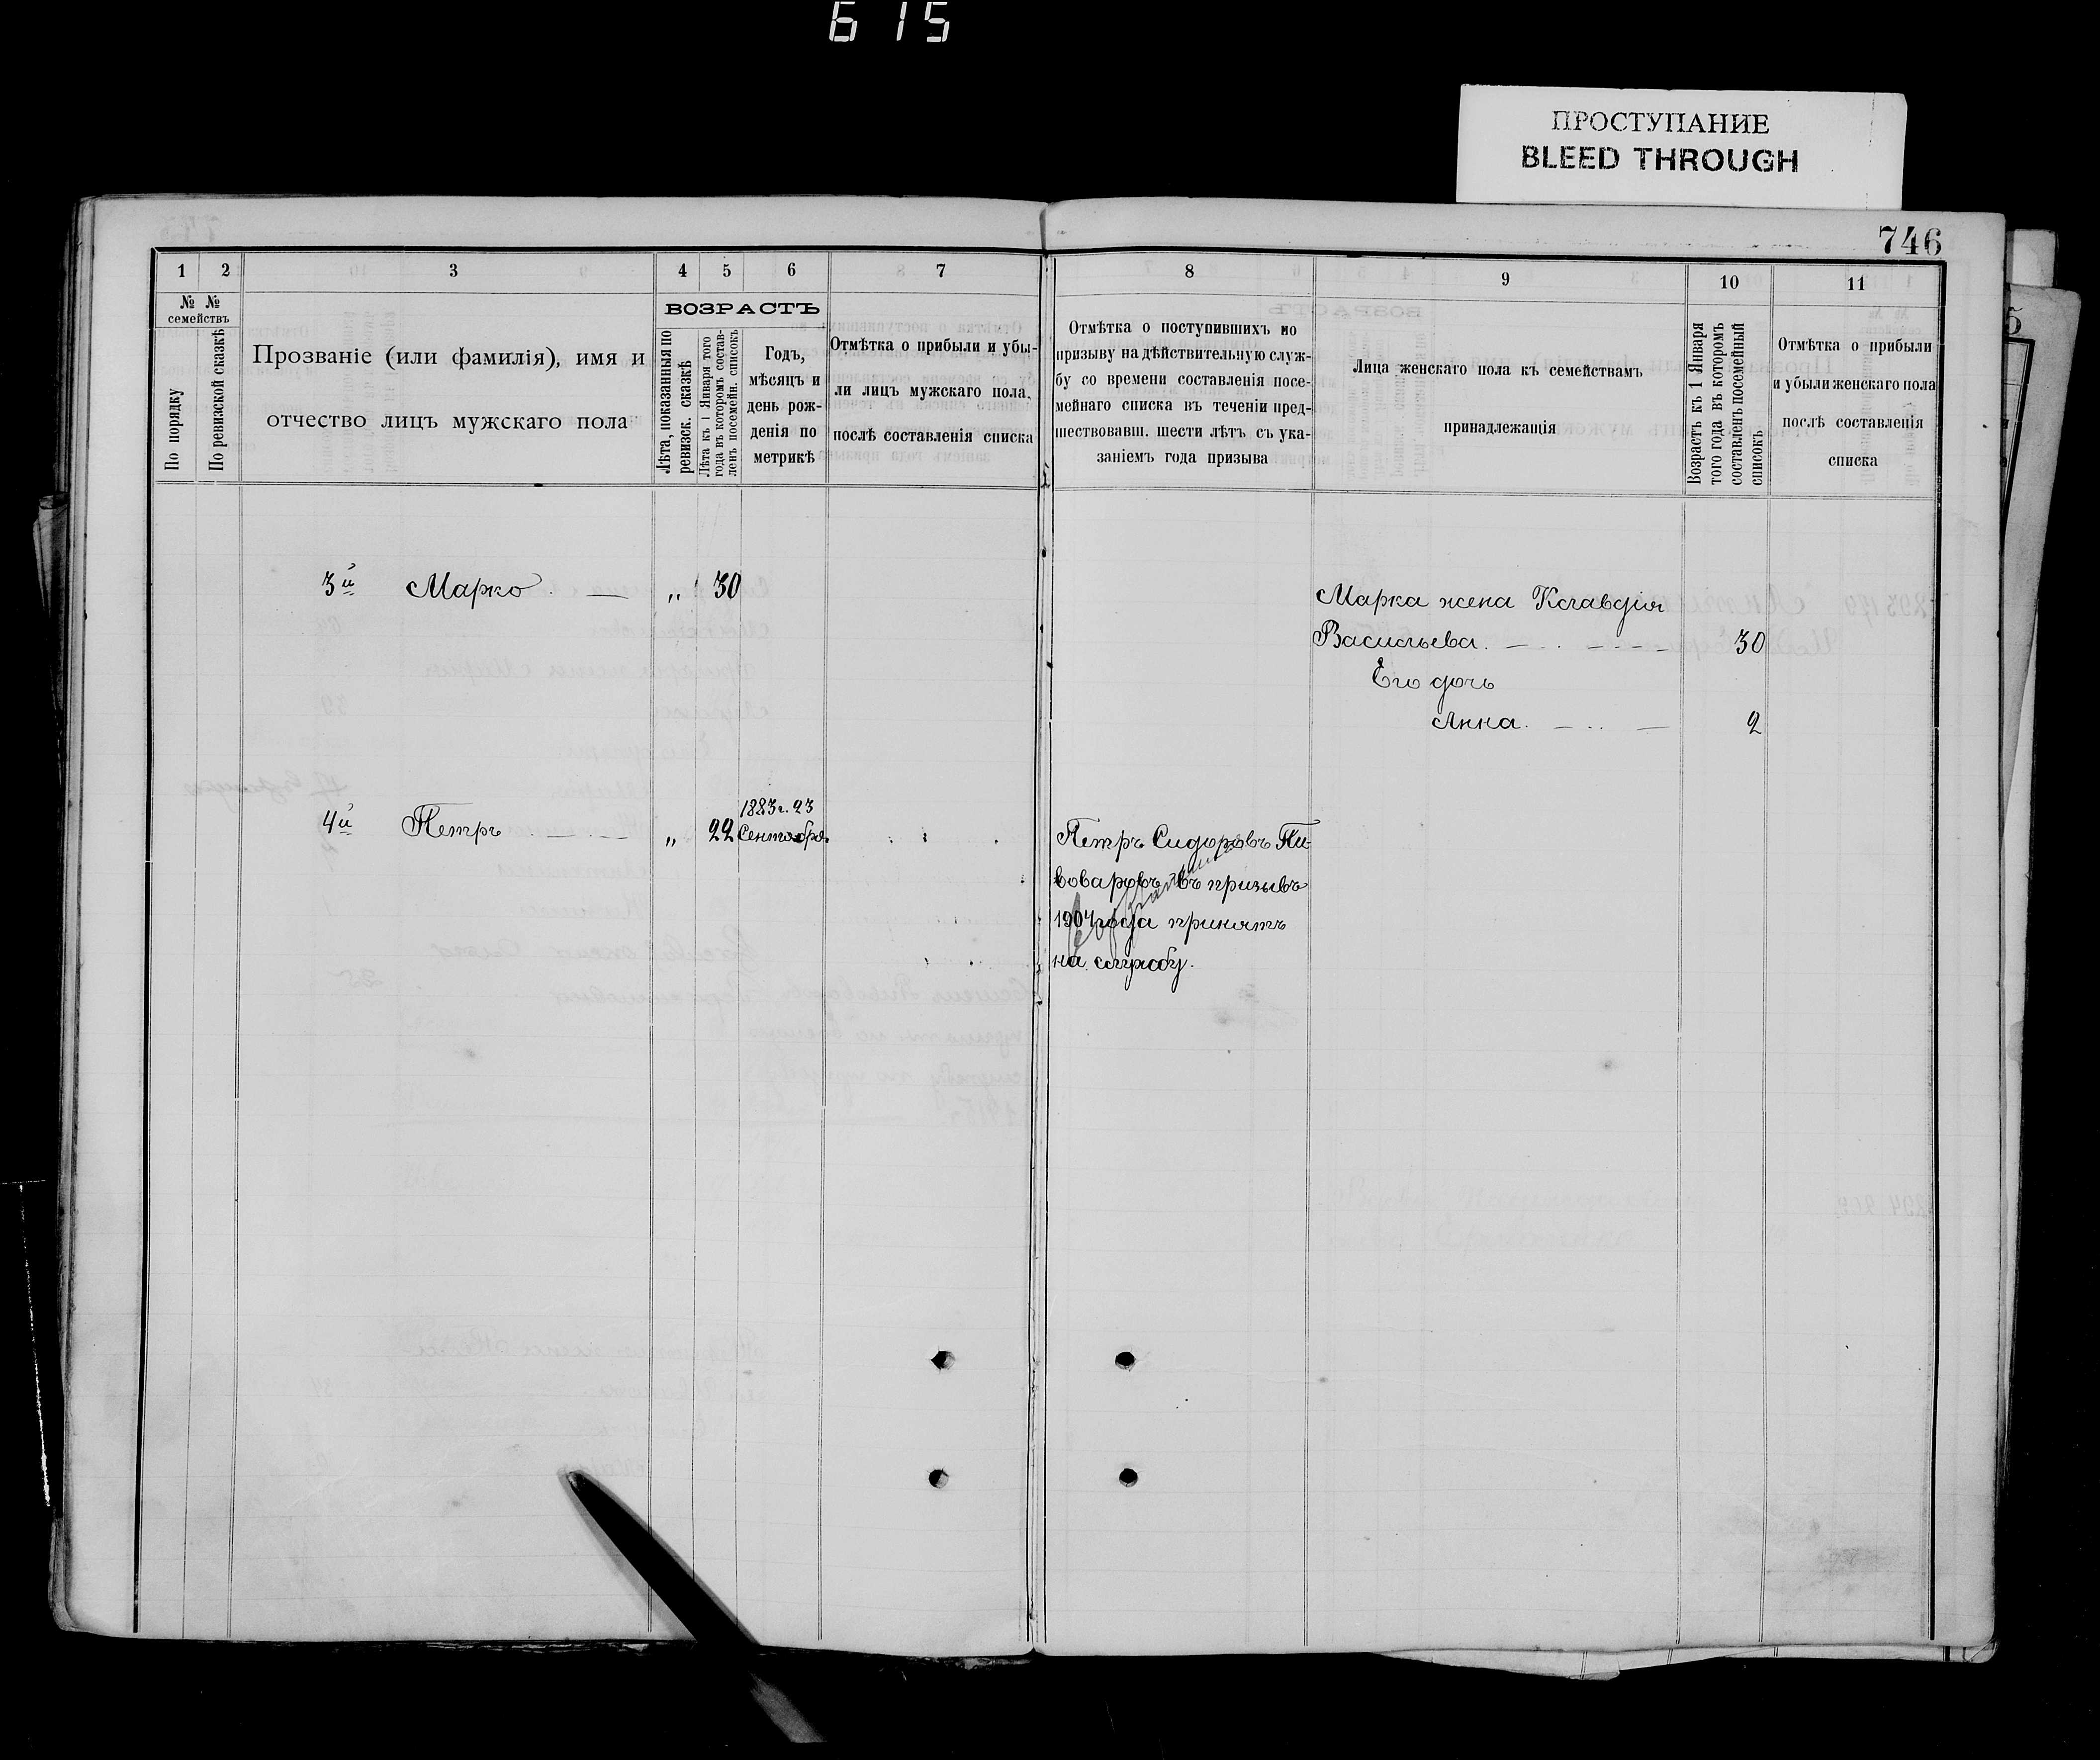 615
ПРОСТУПАНИЕ
BLEED THROUGH
746
1 2 3 4 5 6 7
№ № семействъ
По порядку
По ревизской сказкѣ
Прозваніе (или фамилія), имя и
отчество лицъ мужскаго пола
ВОЗРАСТЪ
Лѣта, показанныя по
ревизск. сказкѣ
Лѣта къ 1 Января того
года въ которомъ состав-
ленъ посемейн. списокъ
Годъ,
мѣсяцъ и
день рож-
денія по
метрикѣ
Отмѣтка о прибыли и убы-
ли лицъ мужскаго пола,
послѣ составленія списка
8 9 10 11
Отмѣтка о поступившихъ по
призыву на дѣйствительную служ-
бу со времени составленія посе-
мейнаго списка въ теченіи пред-
шествовавш. шести лѣтъ съ ука-
заніемъ года призыва
Лица женскаго пола къ семействамъ
принадлежащія
Возрастъ къ 1 Января
того года въ которомъ
составленъ посемейный
списокъ
Отмѣтка о прибыли
и убыли женскаго пола
послѣ составленія
списка
3й Марко „ 30
Марка жена Клавдія
Васильева. 30
Его дочь
Анна. 2
4й Петръ „ 22 1883г. 23
Сентября
Петръ Сидоровъ Пи-
воваровъ въ призывъ
1904 года принятъ
на службу.